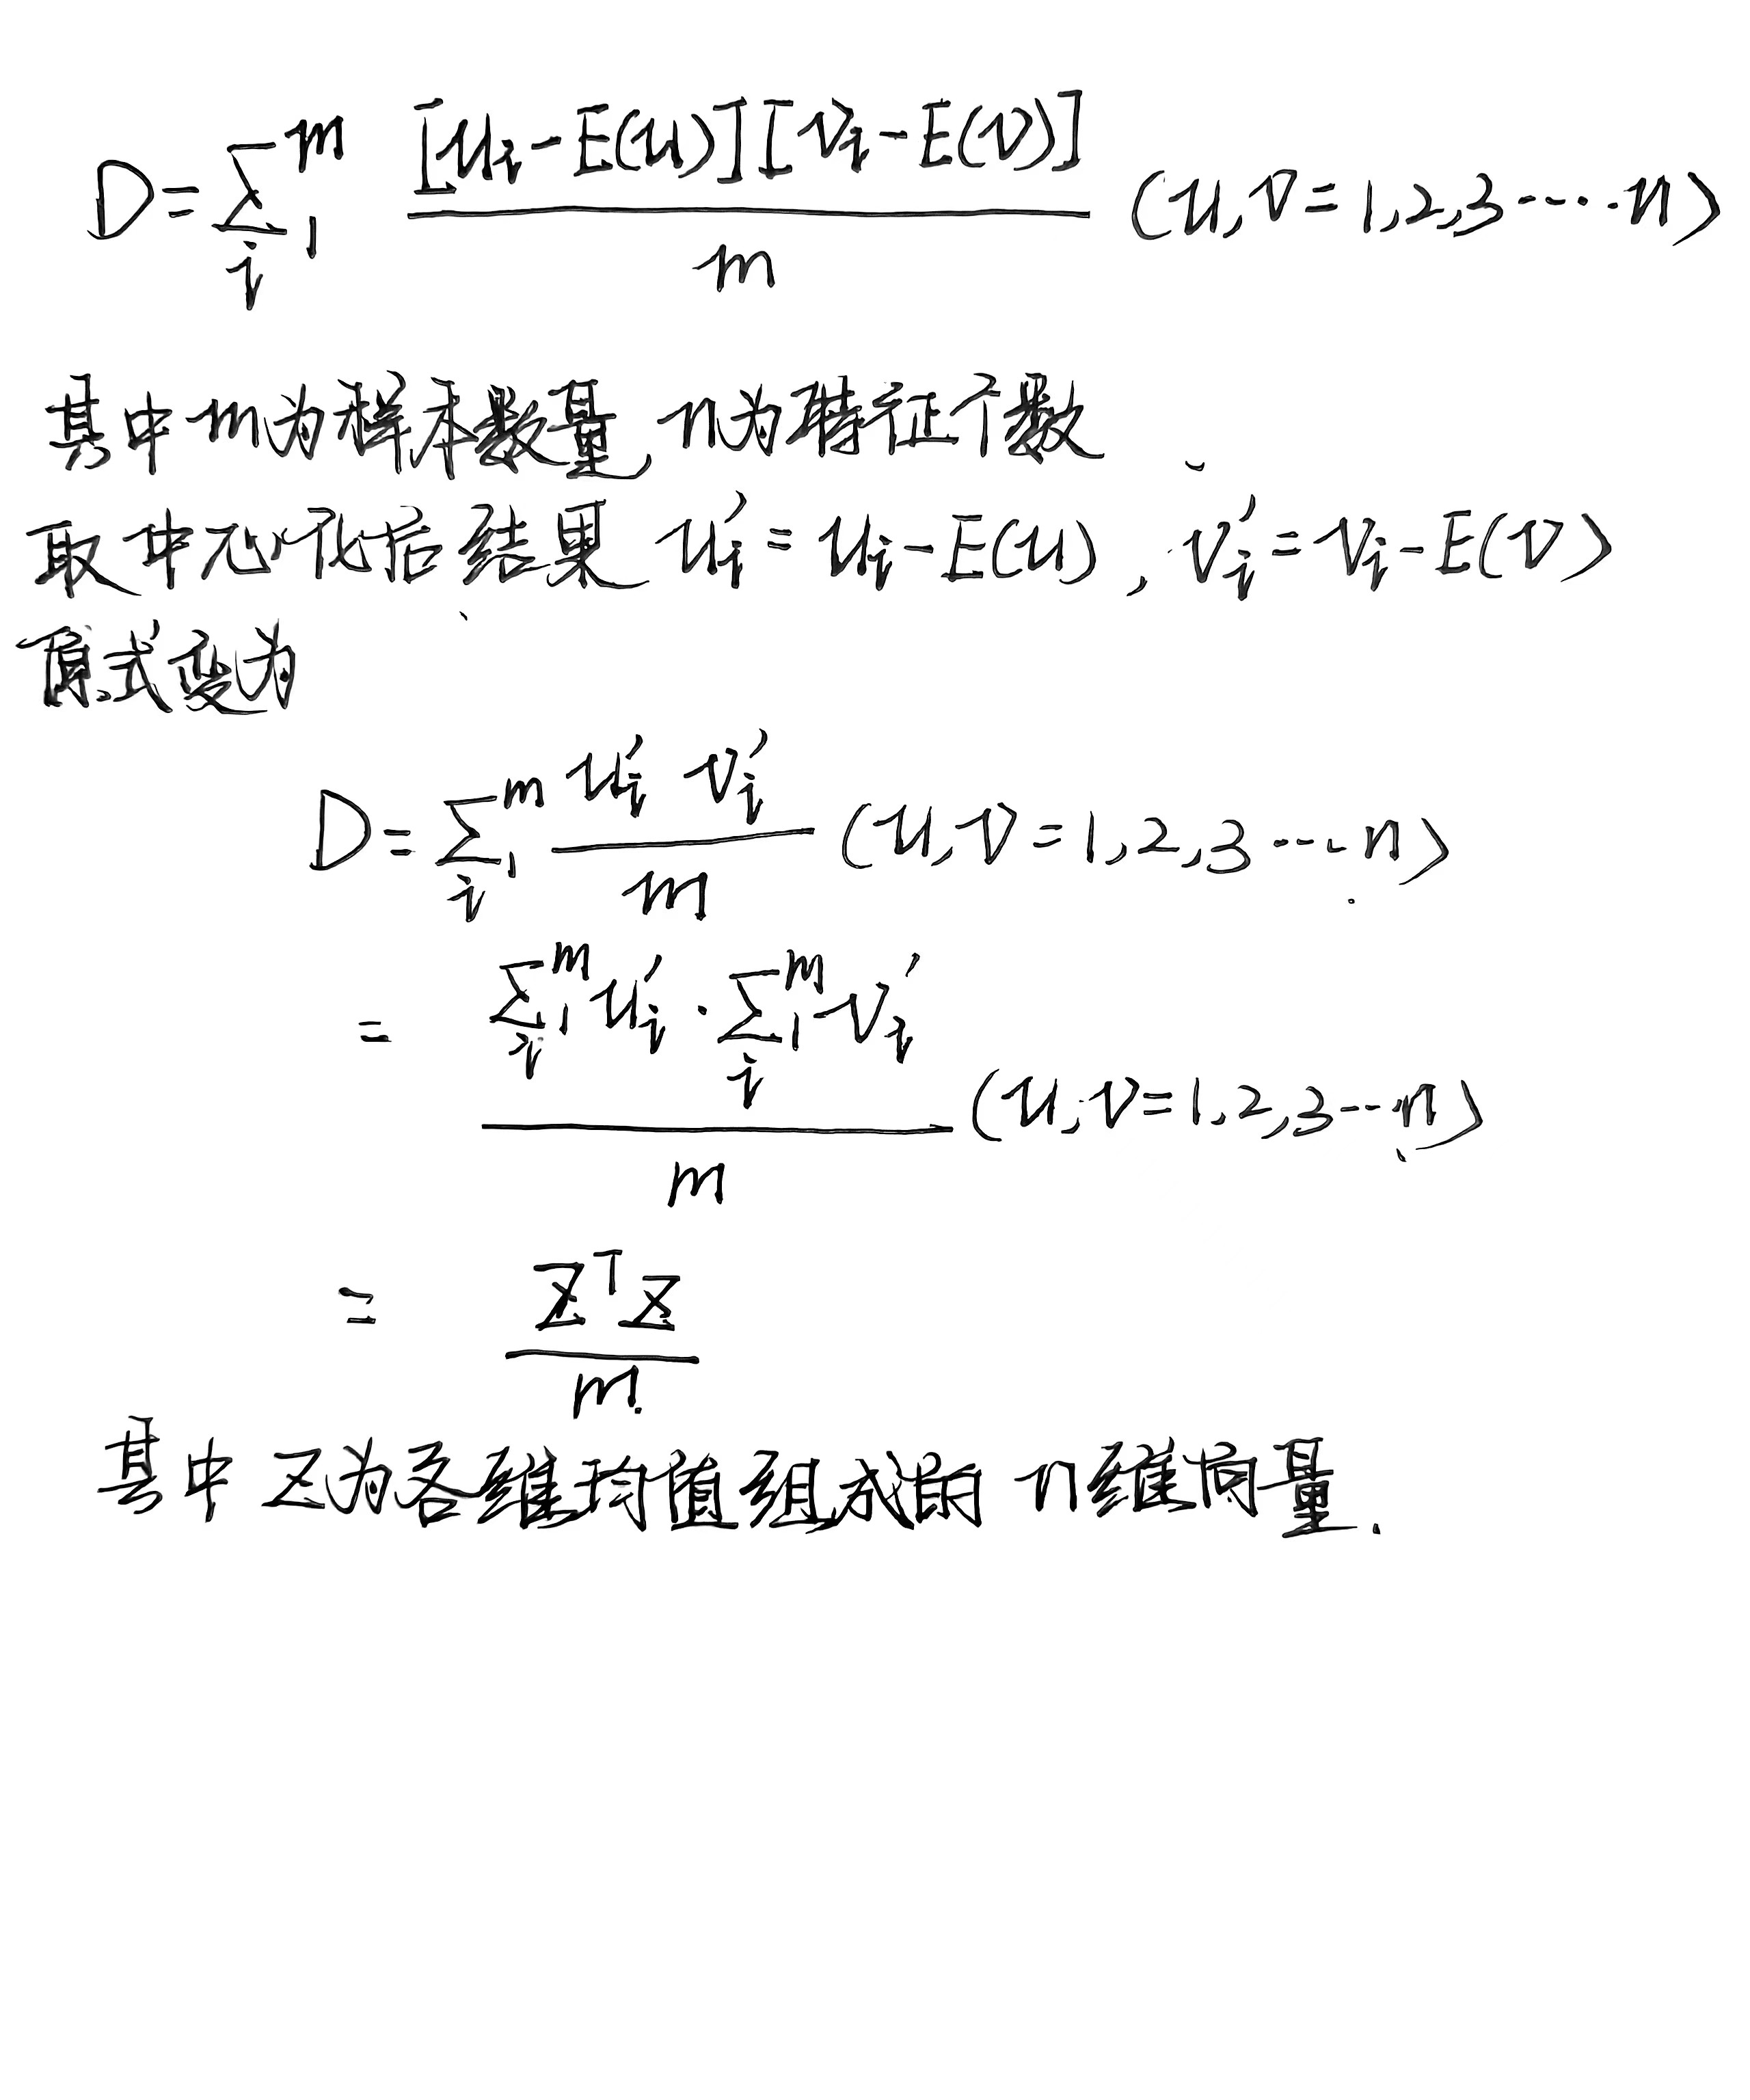 D = ∑_{i}^{m}_{1} [u_i - E(u)][v_i - E(v)] / m (u, v = 1, 2, 3 ····· n)
其中m为样本数量, n为特征个数
取中心化后结果 u_i' = u_i - E(u), v_i' = v_i - E(v)
原式变为
D = ∑_{i}^{m}_{1} u_i' v_i' / m (u, v = 1, 2, 3 ···· n)
= ∑_{i}^{m}_{1} u_i' · ∑_{i}^{m}_{1} v_i' / m (u, v = 1, 2, 3 ··· n)
= Z^T Z / m
其中 Z为各维均值组成的 n维向量.